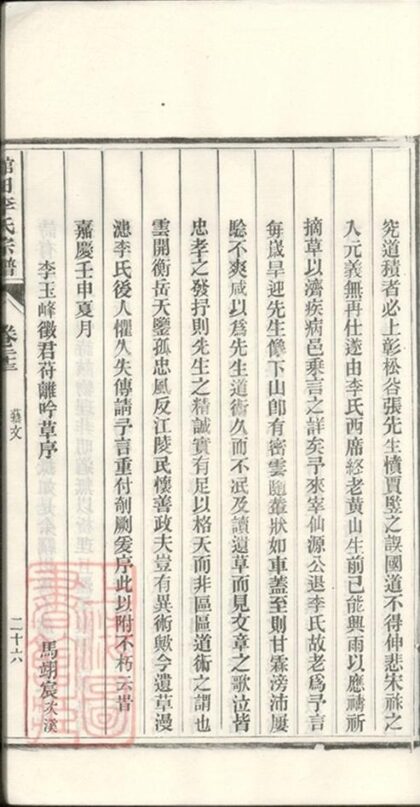 究道積者必上彰松谷張先生憤賈豎之誤國道不得伸悲宋祿之
入元義無再仕遂由李氏西席終老黃山生前已能興雨以應禱祈
摘草以濟疾病邑乘言之詳矣予來宰仙源公退李氏故老為予言
每歲旱迎先生像下山卽有密雲隨輦狀如車蓋至則甘霖滂沛屢
驗不爽咸以為先生道術久而不泯及讀遺草而見文章之歌泣皆
忠孝之發抒則先生之精誠實有足以格天而非區區道術之謂也
雲開衡岳天鑒孤忠風反江陵民懷善政夫豈有異術歟今遺草漫
漶李氏後人懼久失傳請予言重付剞劂爰序此以附不朽云旹
嘉慶壬申夏月
李玉峰徵君荷離吟草序
馬翊宸次溪
館田李氏宗譜
卷三
藝文
二十六